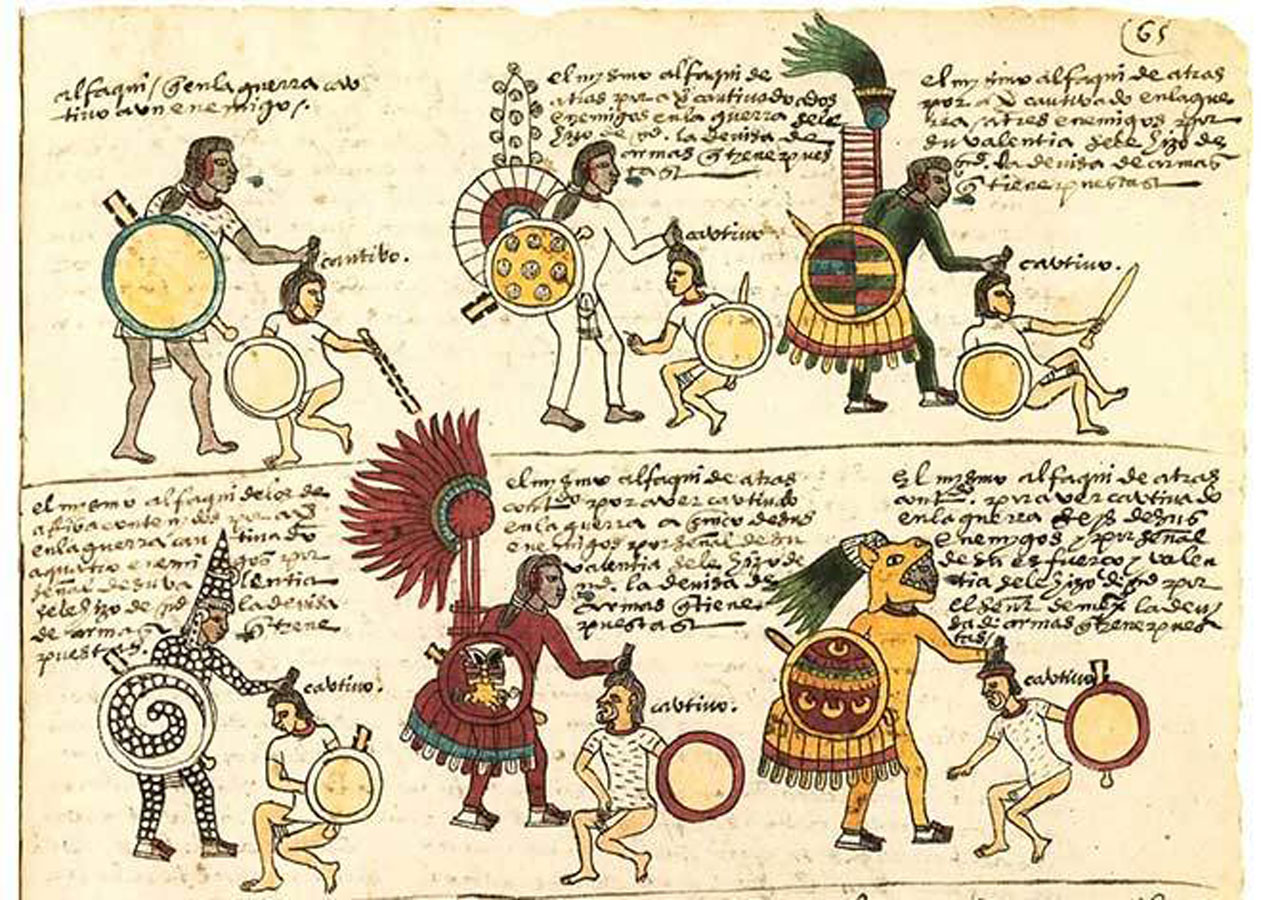 65
alfaqui / q̃ en la guerra cau
tivo a un enemigo /.
cautibo.
el mysmo alfaqui de
atras por a v̄ cautivado a dos
enemigos en la guerra se le
hizo de md. la devisa de
armas q̃ tiene pues
tas
cautivo
el mysmo alfaqui de atras
por a v̄ cautivado en la gue
rra a tres enemigos por
su valentia se le hizo de
md. la devisa de armas
q̃ tiene puestas
cautivo.
el mysmo alfaqui de los de
en la guerra cau tivado
a quatro enemi gos por
señal de su va lentia
se le hizo de md la devisa
de armas q̃ tiene
puestas.
cautivo.
el mysmo alfaqui de atras
por aver cautivado
en la guerra a cinco de sus
enemigos por señal de su
valentia se le hizo de
md. la devisa de
armas q̃ tiene
puestas
cautivo.
El mysmo alfaqui de atras
por aver cautivado
en la guerra de sus
enemygos / y por señal
de su esfuerço y valen
tia se le hizo de md por
el señor de mexco la devi
sa de armas q̃ tiene pues
tas /
cautivo